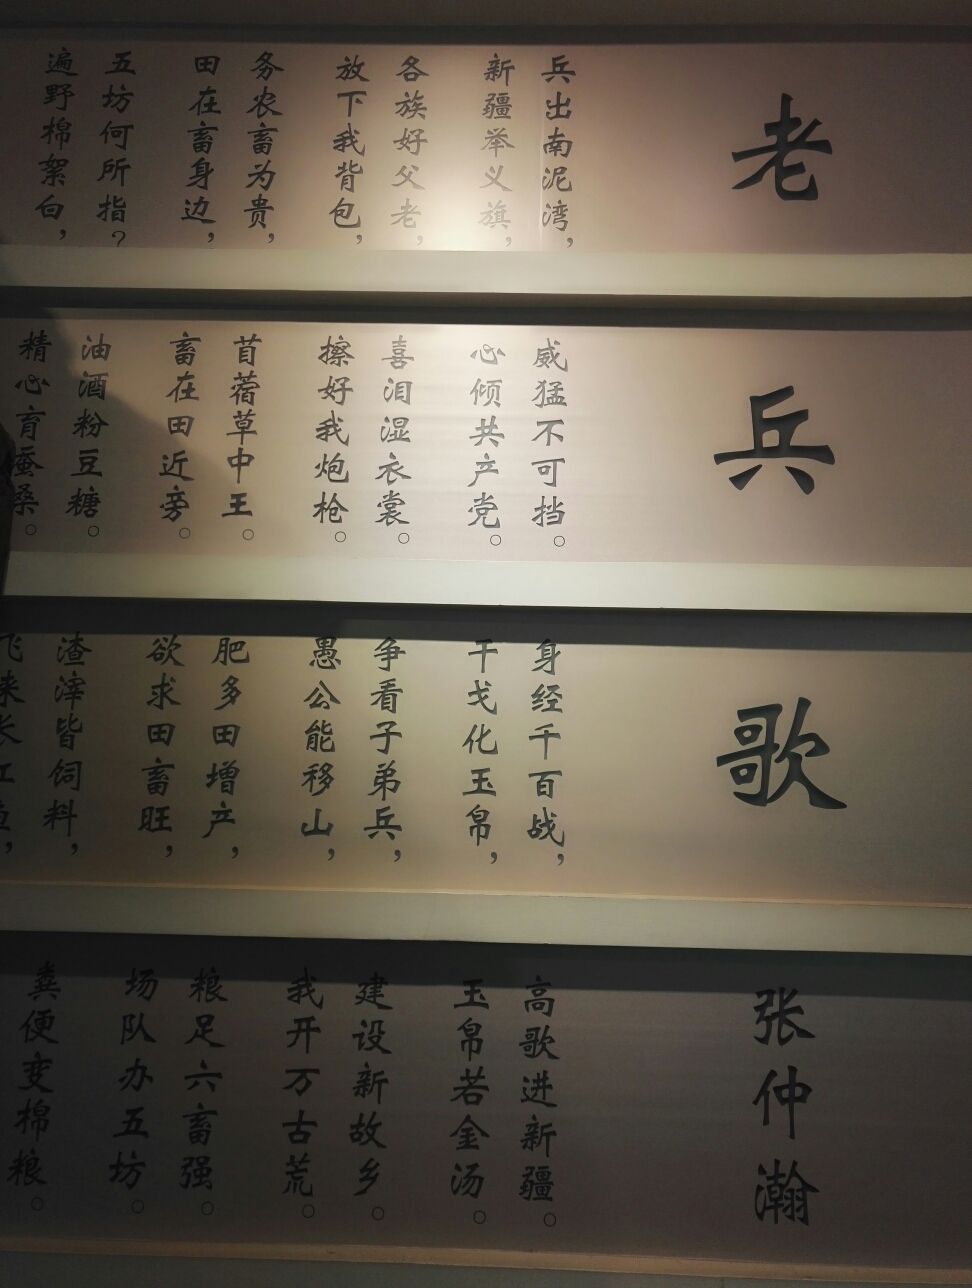 老兵歌
张仲瀚
兵出南泥湾,威猛不可挡。身经千百战,高歌进新疆。
新疆举义旗,心倾共产党。干戈化玉帛,玉帛若金汤。
各族好父老,喜泪湿衣裳。争看子弟兵,建设新故乡。
放下我背包,擦好我炮枪。愚公能移山,我开万古荒。
务农畜为贵,苜蓿草中王。肥多田增产,粮足六畜强。
田在畜身边,畜在田近旁。欲求田畜旺,场队办五坊。
五坊何所指?油酒粉豆糖。渣滓皆饲料,粪便变棉粮。
遍野棉絮白,精心育蚕桑。